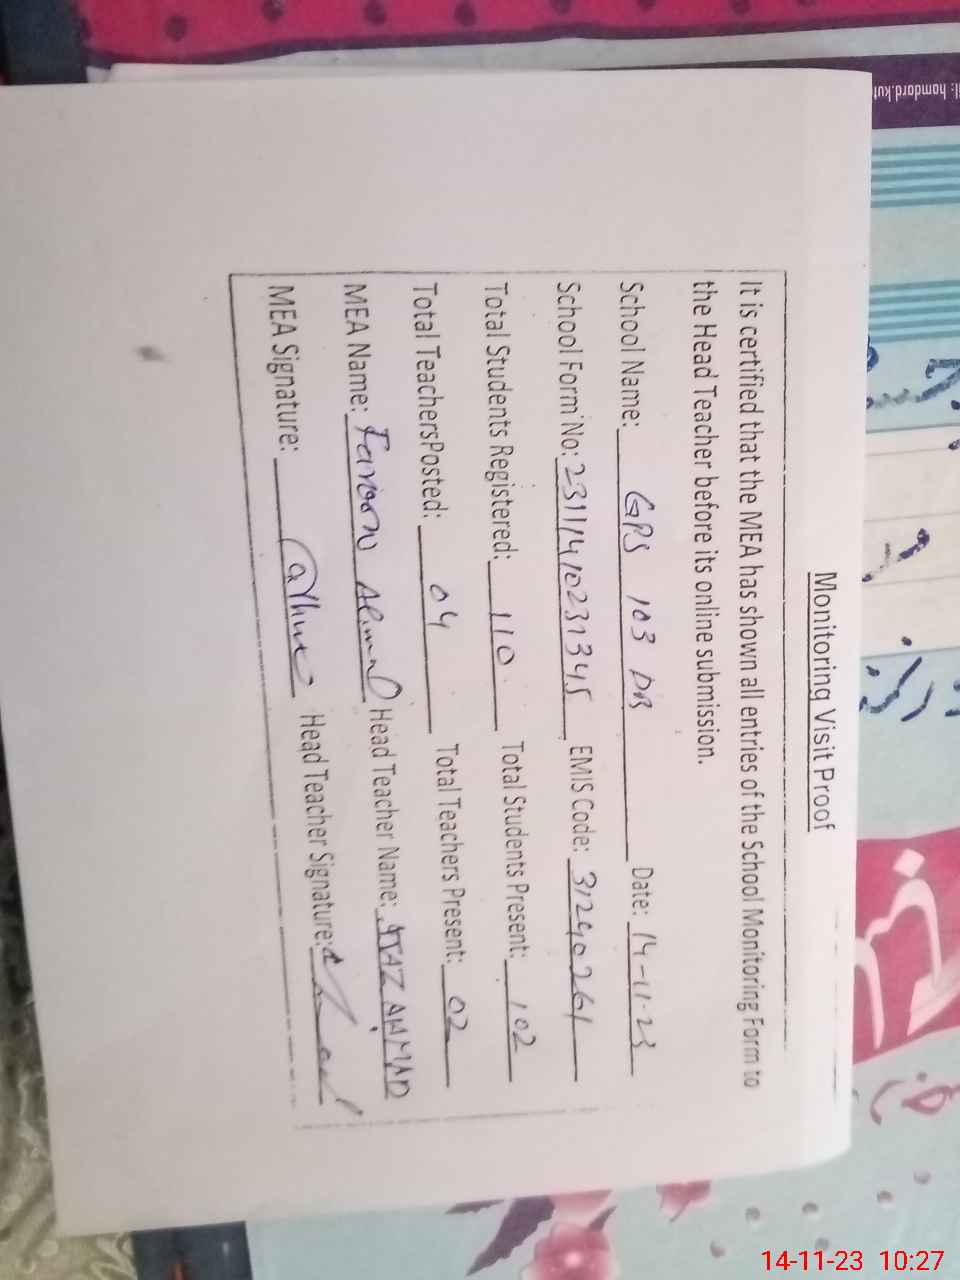 Monitoring Visit Proof
It is certified that the MEA has shown all entries of the School Monitoring Form to
the Head Teacher before its online submission.
School Name: GPS 103 DB Date: 14-11-23
School Form No: 23111410231345 EMIS Code: 31240261
Total Students Registered: 110 Total Students Present: 102
Total TeachersPosted: 04 Total Teachers Present: 02
MEA Name: Ahmad Head Teacher Name: IJAZ AHMAD
MEA Signature: Head Teacher Signature:
14-11-23 10:27